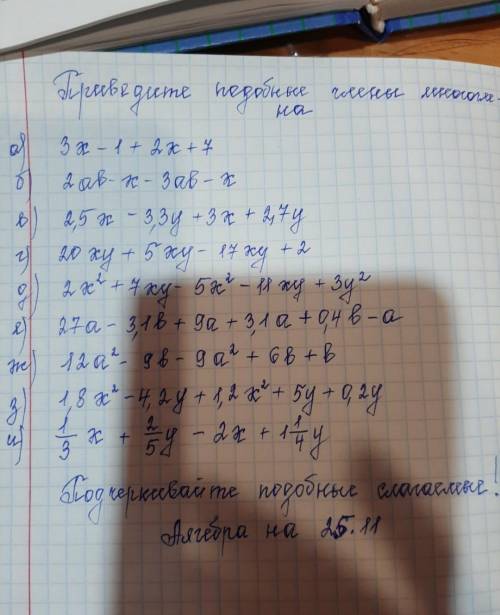 Приведите подобные члены многочле-
на
а) 3x - 1 + 2x + 7
б) 2ab - x - 3ab - x
в) 2,5x - 3,3y + 3x + 2,7y
г) 20xy + 5xy - 17xy + 2
д) 2x² + 7xy - 5x² - 11xy + 3y²
е) 27a - 3,1b + 9a + 3,1a + 0,4b - a
ж) 12a² - 9b - 9a² + 6b + b
з) 1,8x² - 4,2y + 1,2x² + 5y + 0,2y
и) 1/3 x + 2/5 y - 2x + 1 1/4 y
Подчеркивайте подобные слагаемые!
Алгебра на 25.11